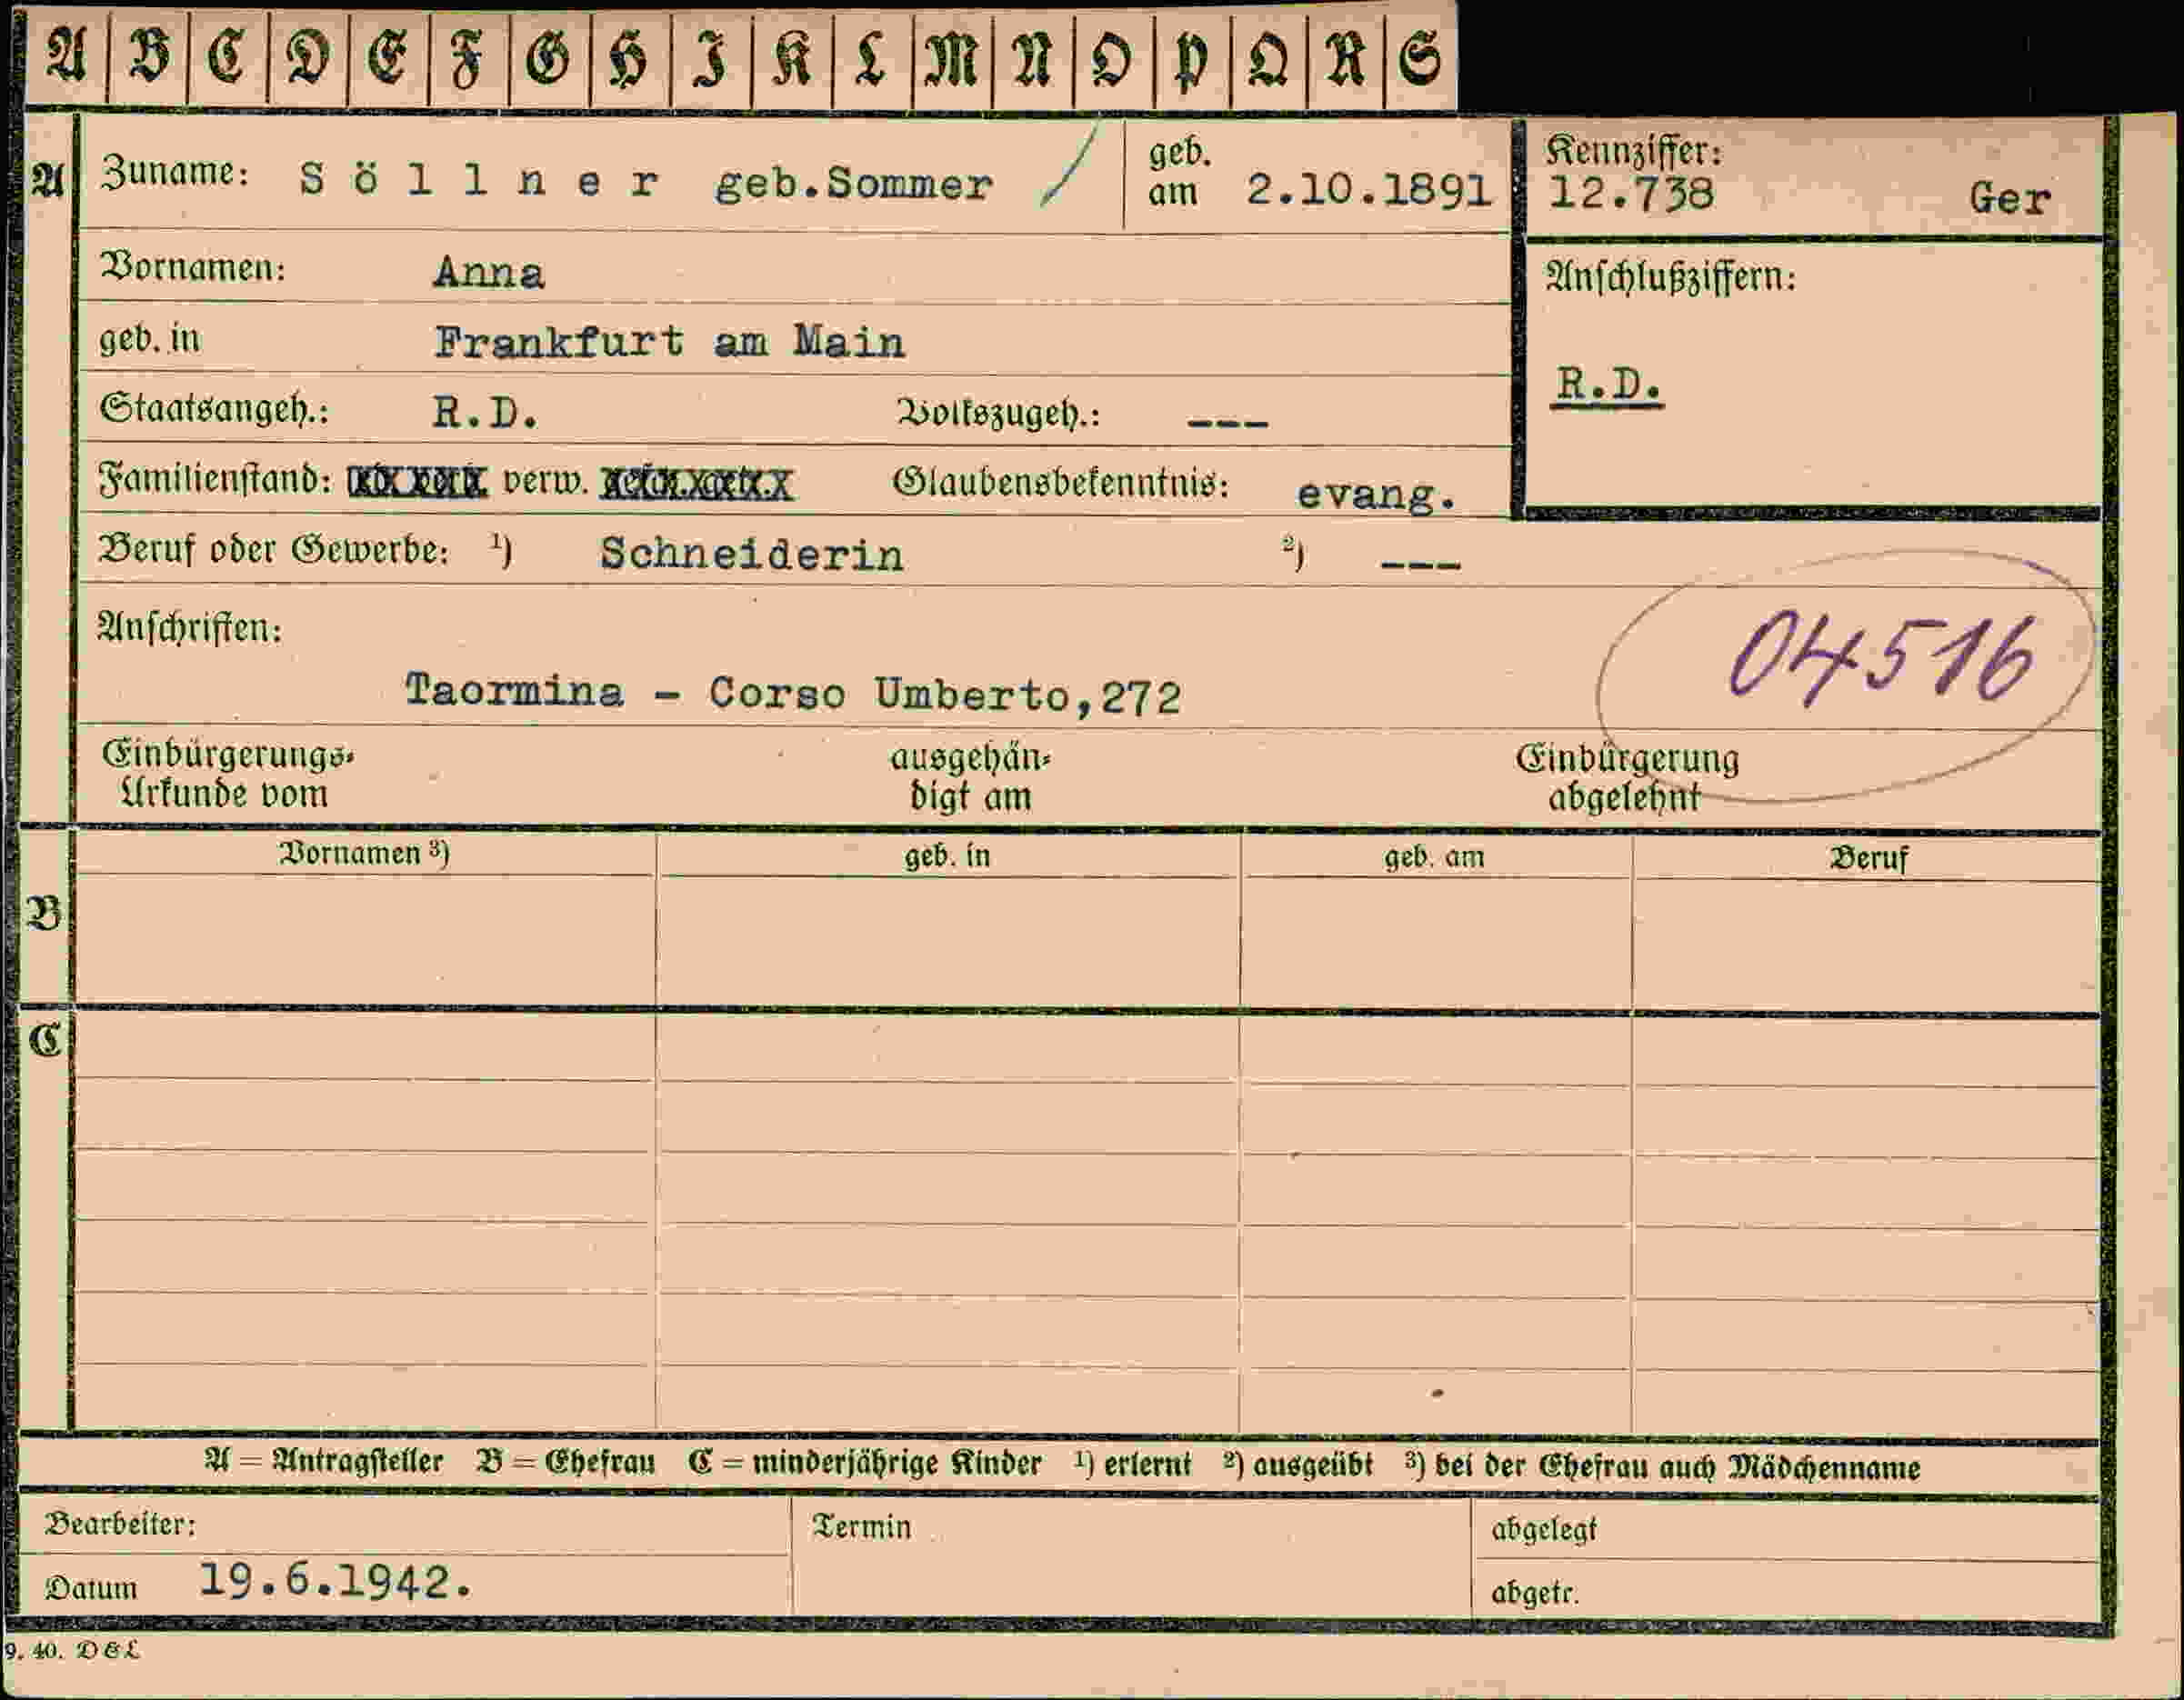 A B C D E F G H I K L M N O P Q R S
A Zuname: Söllner geb.Sommer / geb. am 2.10.1891
Kennziffer:
12.738 Ger
Vornamen: Anna
Anschlußziffern:
geb. in Frankfurt am Main
R.D.
Staatsangeh.: R.D. Volkszugeh.: ---
Familienstand: verw. Glaubensbekenntnis: evang.
Beruf oder Gewerbe: ¹) Schneiderin ²) ---
Anschriften:
04516
Taormina - Corso Umberto,272
Einbürgerungs-Urkunde vom ausgehän-digt am Einbürgerung abgelehnt
Vornamen ³) geb. in geb. am Beruf
B
C
A = Antragsteller B = Ehefrau C = minderjährige Kinder ¹) erlernt ²) ausgeübt ³) bei der Ehefrau auch Mädchenname
Bearbeiter: Termin abgelegt
Datum 19.6.1942. abgetr.
9. 40. D&L